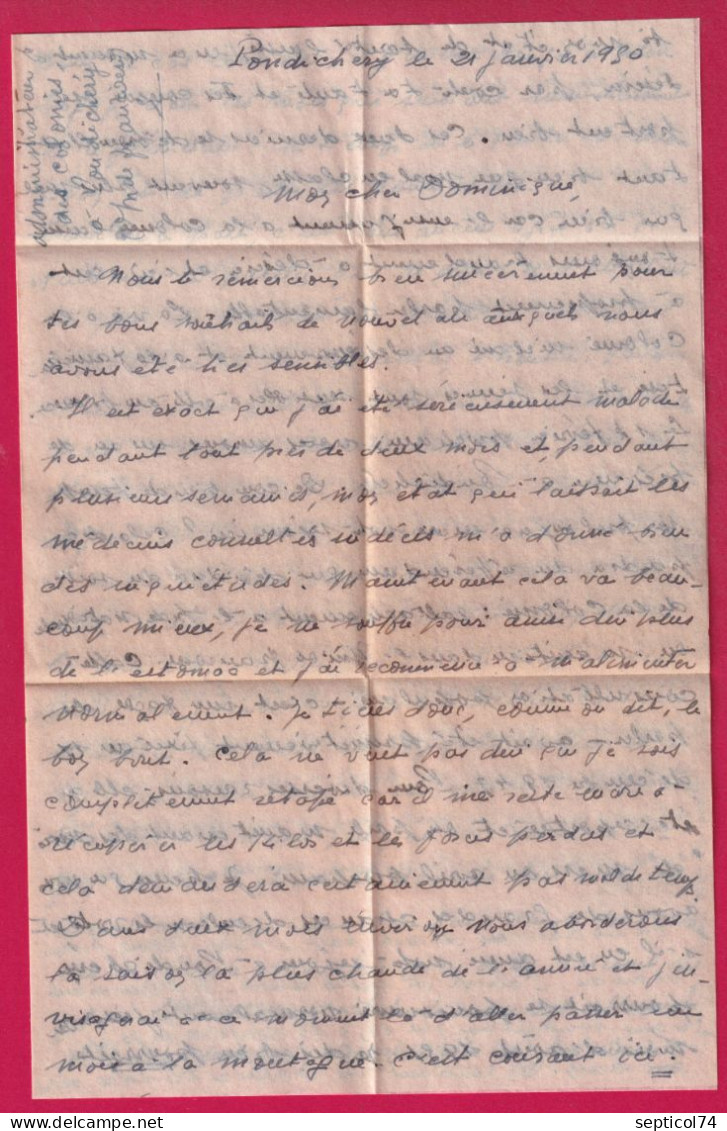 Pondichéry le 21 janvier 1950
administrateur
des colonies
à Pondichéry
Mon cher Dominique,
Nous te remercions bien sincèrement pour
tes bons souhaits de nouvel an auxquels nous
avons été très sensibles.
Il est exact que j'ai été sérieusement malade
pendant tout près de deux mois et, pendant
plusieurs semaines, mon état qui laissait les
médecins consultés indécis m'a donné bien
des inquiétudes. Maintenant cela va beau-
coup mieux, je ne souffre pour ainsi dire plus
de l'estomac et j'ai recommencé à m'alimenter
normalement. Je tiens donc, comme on dit, le
bon bout. Cela ne veut pas dire que je sois
complètement retapé car il me reste encore à
récupérer les kilos et les forces perdus et
cela demandera certainement pas mal de temps
Dans deux mois environ nous aborderons
la saison la plus chaude de l'année et j'en-
visagerai à ce moment là d'aller passer un
mois à la montagne. C'est courant ici.
septicol74